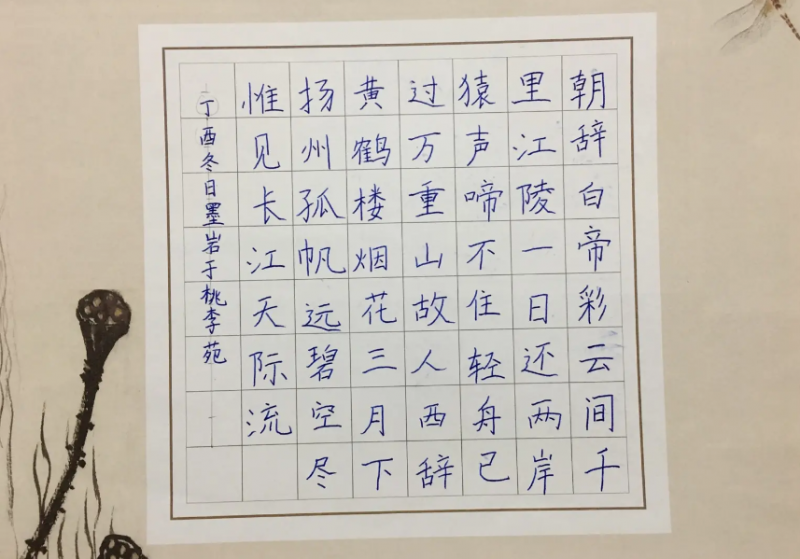 朝辞白帝彩云间千
里江陵一日还两岸
猿声啼不住轻舟已
过万重山故人西辞
黄鹤楼烟花三月下
扬州孤帆远碧空尽
惟见长江天际流
丁酉冬日墨岩于桃李苑